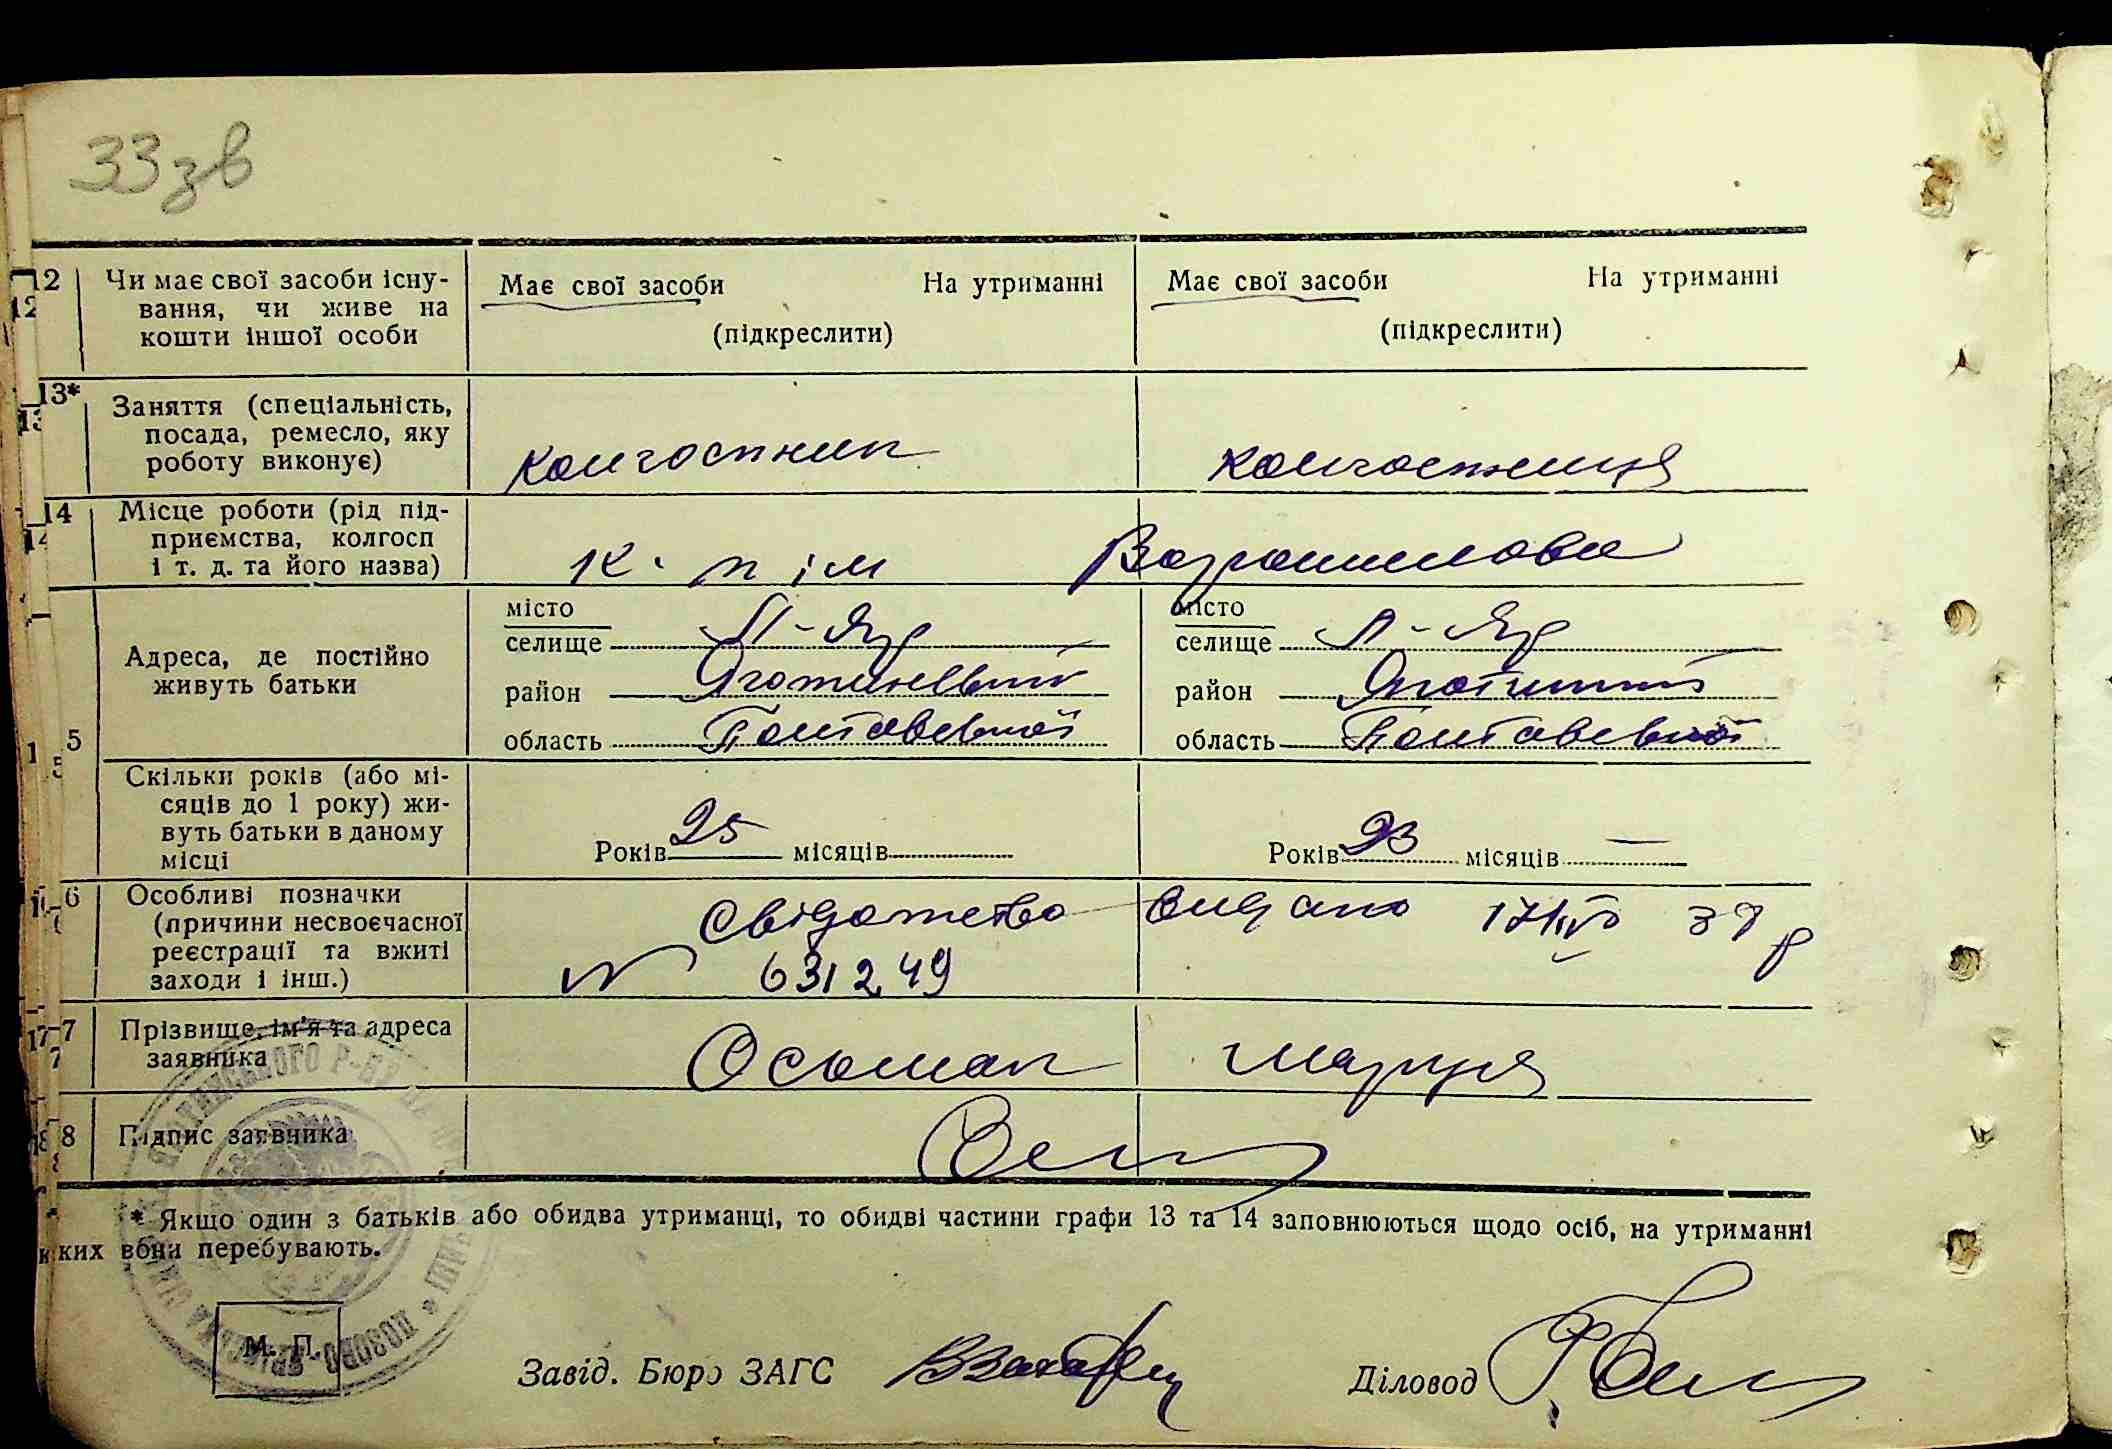 33 зв
12 Чи має свої засоби існу-
вання, чи живе на
кошти іншої особи
Має свої засоби На утриманні
(підкреслити)
Має свої засоби На утриманні
(підкреслити)
13* Заняття (спеціальність,
посада, ремесло, яку
роботу виконує)
колгоспник
колгоспниця
14 Місце роботи (рід під-
приємства, колгосп
і т. д. та його назва)
к-п ім Ворошилова
Адреса, де постійно
живуть батьки
місто
селище Л-Яр
район Яготинський
область Полтавської
місто
селище Л-Яр
район Яготинський
область Полтавської
5
Скільки років (або мі-
сяців до 1 року) жи-
вуть батьки в даному
місці
Років 25 місяців
Років 23 місяців —
6 Особливі позначки
(причини несвоєчасної
реєстрації та вжиті
заходи і інш.)
Свідотство видано 39 р
N 631249
17 Прізвище, ім'я та адреса
заявника
Осьмак Марця
18 Підпис заявника
* Якщо один з батьків або обидва утриманці, то обидві частини графи 13 та 14 заповнюються щодо осіб, на утриманні
яких вони перебувають.
М. П.
Завід. Бюро ЗАГС
Діловод